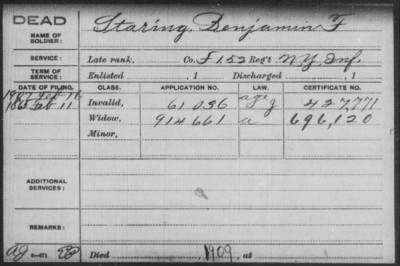 DEAD
NAME OF SOLDIER: Staring, Benjamin F
SERVICE: Late rank, Co. F 152 Reg't N.Y. Inf.
TERM OF SERVICE: Enlisted , 1 Discharged , 1
DATE OF FILING. CLASS. APPLICATION NO. LAW. CERTIFICATE NO.
Invalid, 61 096 427,771
Widow, 914 661 a 696,120
Minor,
ADDITIONAL SERVICES:
REMARKS:
Died , 1909, at